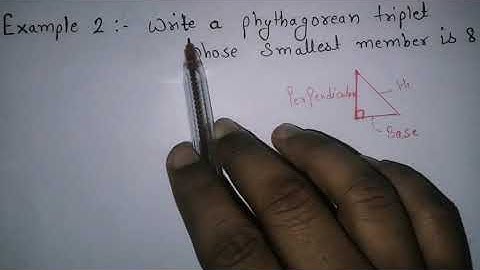 Example 2 :- Write a phythagorean triplet
whose smallest member is 8
Perpendicular
Hy
Base